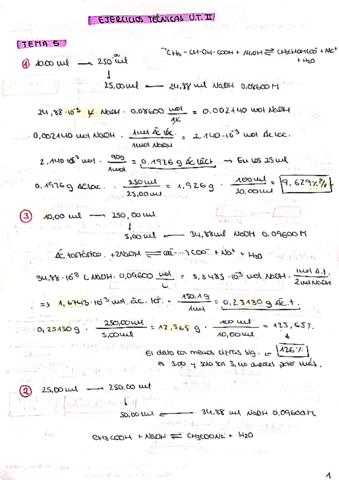 EJERCICIOS TÉCNICAS U.T. II
TEMA 5
CH3-CH-OH-COOH + NaOH ⇌ CH3CHOHCOO⁻ + Na⁺
+ H2O
① 10,00 ml → 250 ml
25,00 ml → 24,88 ml NaOH 0,08600 M
24,88·10⁻³ L NaOH · 0,08600 mol/1L = 0,002140 mol NaOH
0,002140 mol NaOH · 1 mol Ác. lác. / 1 mol NaOH = 2,140·10⁻³ mol Ác. lác.
2,140·10⁻³ mol · 90g/1mol = 0,1926 g Ác. láct → En los 25 ml
0,1926 g Ác. lác. · 250/25,00 ml = 1,926 g · 100 ml/20,00 ml = 9,629 %
③ 10,00 ml → 250,00 ml
5,00 ml → 34,88 ml NaOH 0,09600 M
Ác. tartárico + 2NaOH ⇌ COO⁻ ... COO⁻ + Na⁺ + H2O
34,88·10⁻³ L NaOH · 0,09600 mol/L = 3,3485·10⁻³ mol NaOH · 1 mol A.t. / 2 mol NaOH
⇒ 1,6743·10⁻³ mol ác. tar. · 150,1g/1mol = 0,25130 g Ác. t.
0,25130 g · 250,00 ml/5,00 ml = 12,565 g · 100 ml/10,00 ml = 125,65 %
El dato con menos cifras sig. → 126 %
es 5,00 y solo son 3, no puedes poner más.
② 25,00 ml → 250,00 ml
50,00 ml → 34,88 ml NaOH 0,09600 M
CH3COOH + NaOH ⇌ CH3COONa + H2O
1